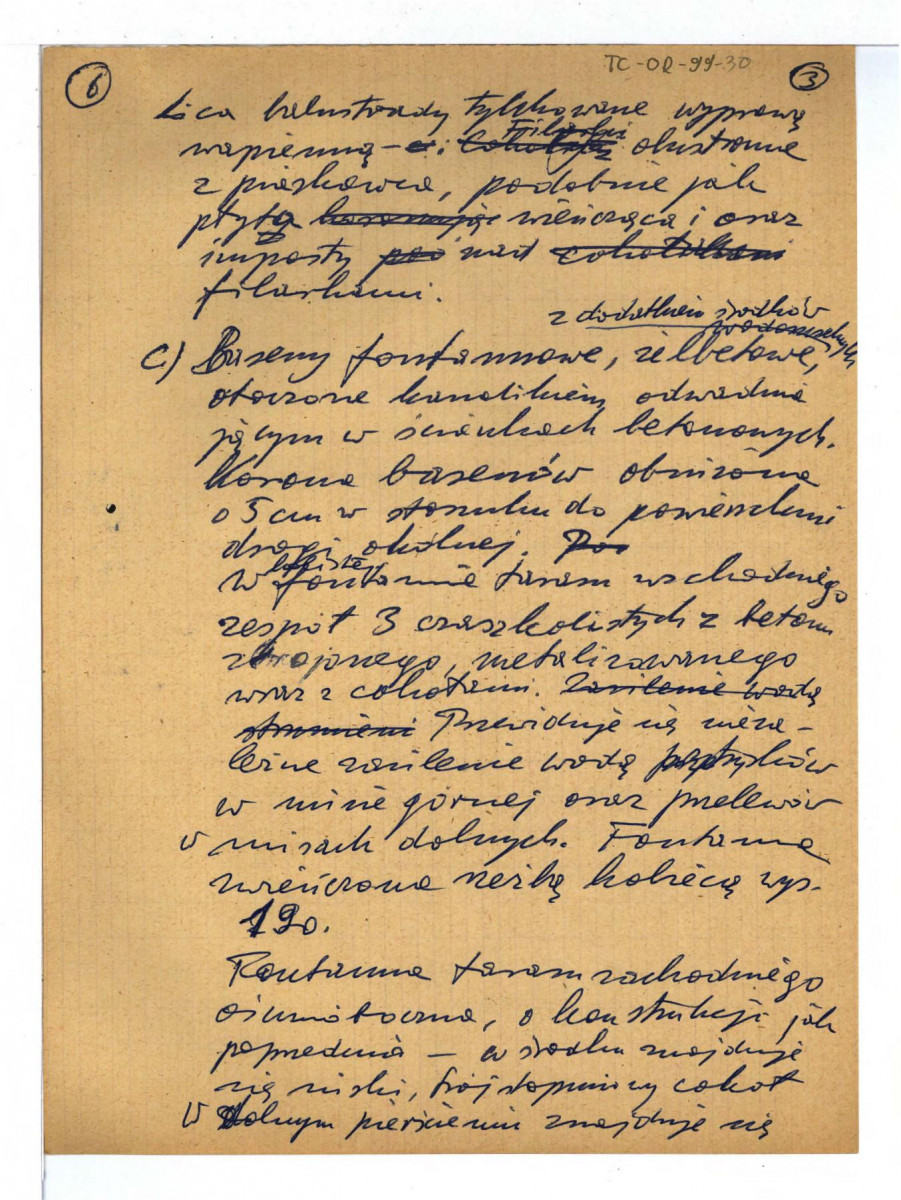 TC-OR-99-30
6
3
Lica balustrady tynkowane wyprawą
Filarki
wapienną – obustronne
z piaskowca, podobnie jak
płytą wieńcząca i oraz
imposty nad cokolikami
filarkami.
z dodatkiem środków
wodoszczelnych
C) Baseny fontannowe, żelbetowe,
otoczone kanalikiem odwadnia
jącym w ściankach betonowych.
Korona basenów obniżona
o 5 cm w stosunku do powierzchni
drogi okólnej. Pos
W fontannie tarasu wschodniego
zespół 3 czasz kolistych z betonu
zbrojonego, metalizowanego
wraz z cokołami. Zasilenie wodą
strumieni Przewiduje się nieza-
leżne zasilenie wodą
w misie górnej oraz przelewów
w misach dolnych. Fontanna
zwieńczona rzeźbą kobiecą wys.
190.
Fontanna tarasu zachodniego
ośmioboczna, o konstrukcji jak
poprzednia – w środku znajduje
się niski, trójstopniowy cokół
W dolnym pierścieniu znajduje się